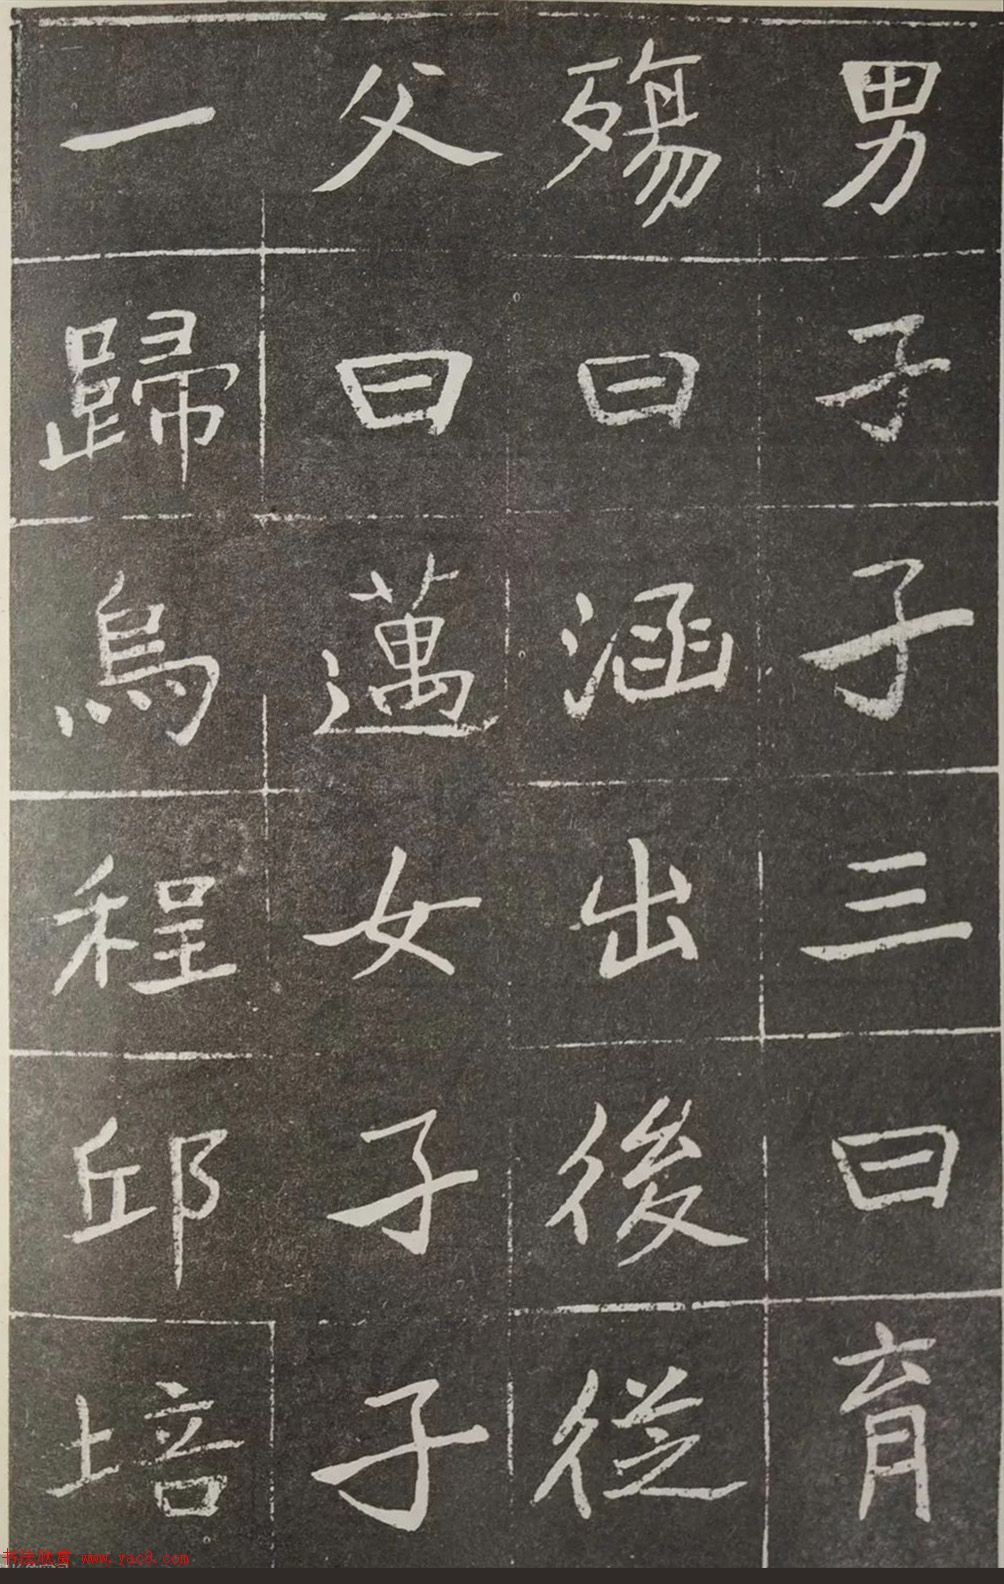 男子子三曰育
殤曰涵出後從
父曰邁女子子
一歸烏程邱培
书法欣赏 www.yac8.com